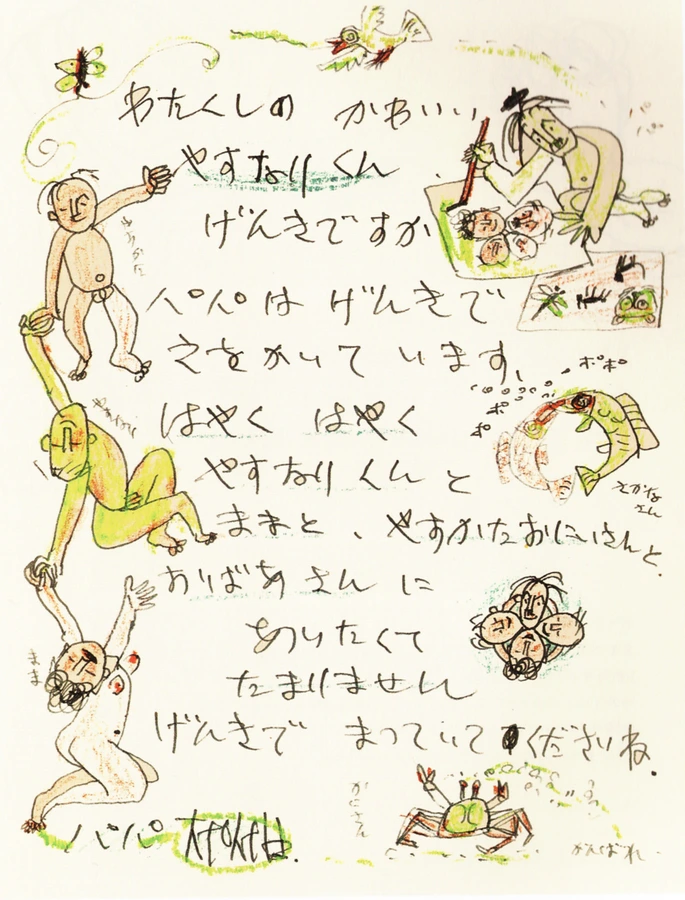 わたくしの かわいい
やすなりくん.
げんきですか
パパは げんきで
えをかいて います、
はやく はやく
やすなりくんと
ままと、やすかたおにいさんと.
おばあさんに
あいたくて
たまりません
げんきで まっていて くださいね.
パパ ㅈㅜㅇㅅㅓㅂ.
やすかた
やすなり
まま
ポポ
ポ
ポ
さかな
さん
かにさん
がんばれ